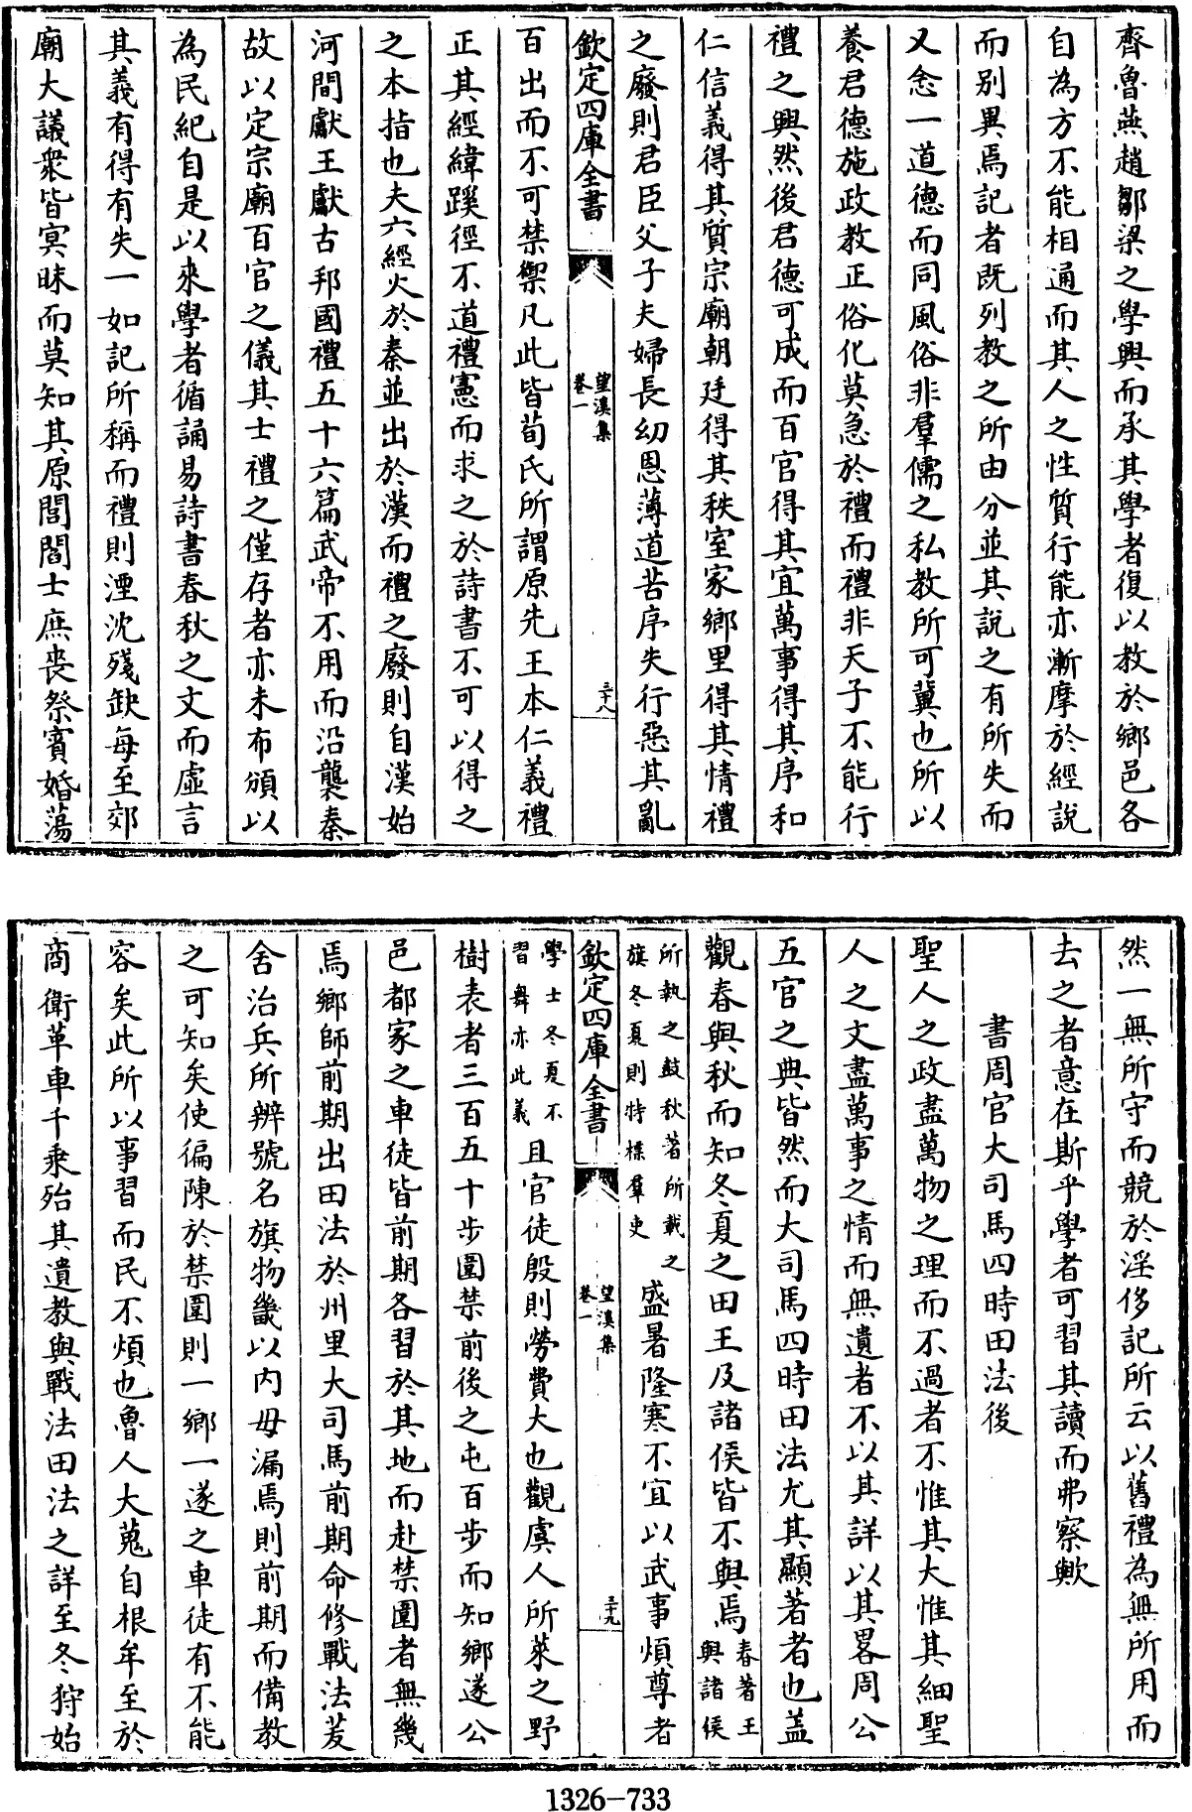 齊魯燕趙鄒梁之學興而承其學者復以教於鄉邑各
自為方不能相通而其人之性質行能亦漸摩於經說
而别異焉記者既列教之所由分並其說之有所失而
又念一道德而同風俗非羣儒之私教所可冀也所以
養君德施政教正俗化莫急於禮而禮非天子不能行
禮之興然後君德可成而百官得其宜萬事得其序和
仁信義得其質宗廟朝廷得其秩室家鄉里得其情禮
之廢則君臣父子夫婦長幼恩薄道苦序失行惡其亂
欽定四庫全書
望溪集
卷一
三十八
百出而不可禁禦凡此皆荀氏所謂原先王本仁義禮
正其經緯蹊徑不道禮憲而求之於詩書不可以得之
之本指也夫六經火於秦並出於漢而禮之廢則自漢始
河間獻王獻古邦國禮五十六篇武帝不用而沿襲秦
故以定宗廟百官之儀其士禮之僅存者亦未布頒以
為民紀自是以來學者循誦易詩書春秋之文而虛言
其義有得有失一如記所稱而禮則湮沈殘缺每至郊
廟大議衆皆冥昧而莫知其原閭閻士庶喪祭賓婚蕩
然一無所守而競於淫侈記所云以舊禮為無所用而
去之者意在斯乎學者可習其讀而弗察歟
書周官大司馬四時田法後
聖人之政盡萬物之理而不過者不惟其大惟其細聖
人之文盡萬事之情而無遺者不以其詳以其畧周公
五官之典皆然而大司馬四時田法尤其顯著者也盖
觀春與秋而知冬夏之田王及諸侯皆不與焉春著王
與諸侯
所執之鼓秋著所載之
旗冬夏則特標羣吏盛暑隆寒不宜以武事煩尊者
欽定四庫全書
望溪集
卷一
三十九
學士冬夏不
習舞亦此義且官徒殷則勞費大也觀虞人所萊之野
樹表者三百五十步圍禁前後之屯百步而知鄉遂公
邑都家之車徒皆前期各習於其地而赴禁圍者無幾
焉鄉師前期出田法於州里大司馬前期命修戰法茇
舍治兵所辨號名旗物畿以内毋漏焉則前期而備教
之可知矣使徧陳於禁圍則一鄉一遂之車徒有不能
容矣此所以事習而民不煩也魯人大蒐自根牟至於
商衛革車千乘殆其遺教與戰法田法之詳至冬狩始
1326-733